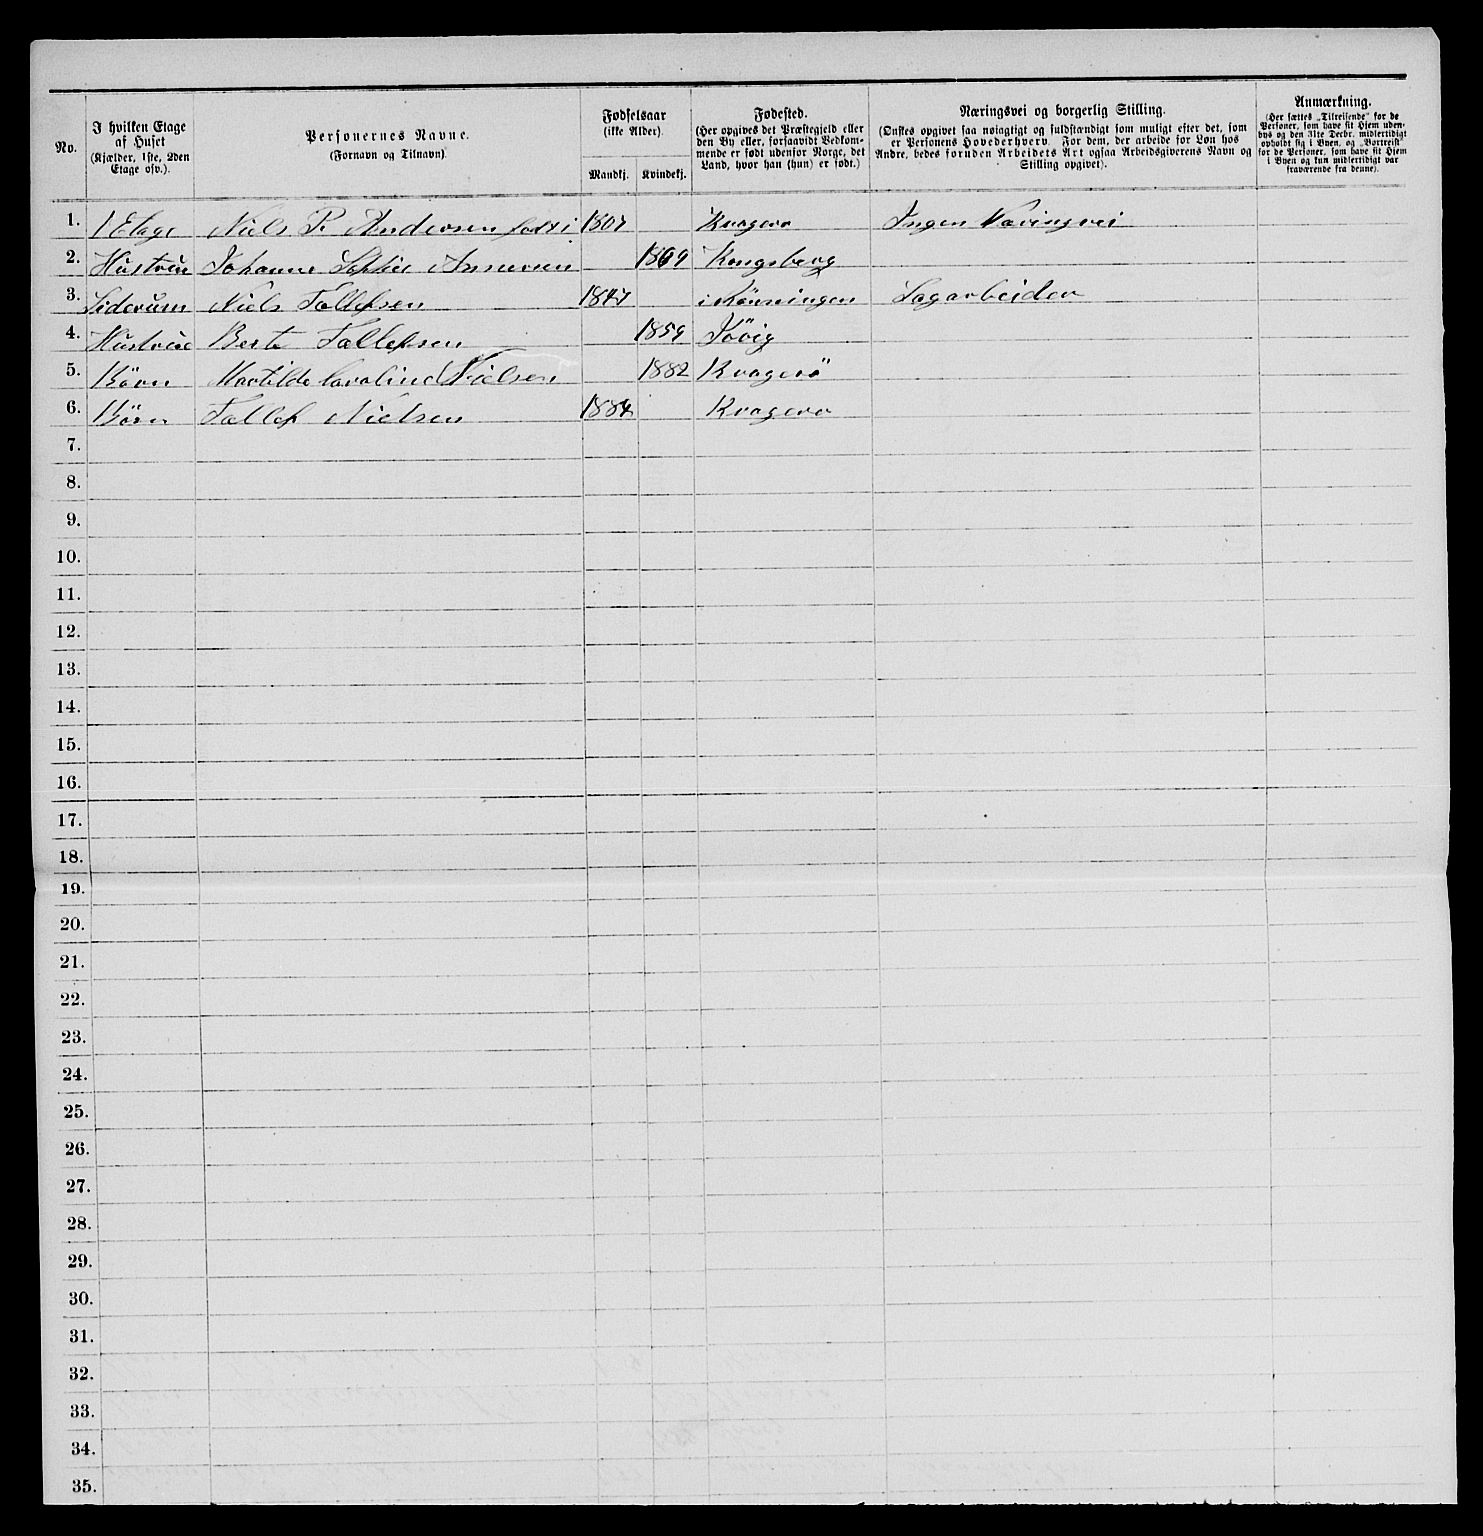 No.
I hvilken Etage
af Huset
(Kjælder, 1ste, 2den
Etage osv.).
Personernes Navne.
(Fornavn og Tilnavn)
Fødselsaar
(ikke Alder).
Mandkj. Kvindekj.
Fødested.
(Her opgives det Præstegjeld eller
den By eller, forsaavidt Vedkom-
mende er født udenfor Norge, det
Land, hvor han (hun) er født.)
Næringsvei og borgerlig Stilling.
(Ønskes opgivet saa nøiagtigt og fuldstændigt som muligt efter det, som
er Personens Hovederhverv. For dem, der arbeide for Løn hos
Andre, bedes foruden Arbeidets Art ogsaa Arbeidsgiverens Navn og
Stilling opgivet).
Anmærkning.
(Her sættes „Tilreisende" for de
Personer, som have sit Hjem uden-
bys og den 31te Decbr. midlertidigt
opholdt sig i Byen, og „Bortreist"
for de Personer, som have sit Hjem
i Byen og kun midlertidigt var
fraværende fra denne).
1. 1 Etage Niels P. Andersen født i 1807 Kragerø Ingen Næringsvei
2. Hustrue Johanne Sophie Annersen 1809 Kongsberg
3. Siderum Niels Tallefsen 1847 Sagarbeider
4. Hustrue Berte Tallefsen 1859
5. Børn Martilde Caroline Nielsen 1882 Kragerö
6. Børn Tallef Nielsen 1884 Kragerø
7.
8.
9.
10.
11.
12.
13.
14.
15.
16.
17.
18.
19.
20.
21.
22.
23.
24.
25.
26.
27.
28.
29.
30.
31.
32.
33.
34.
35.